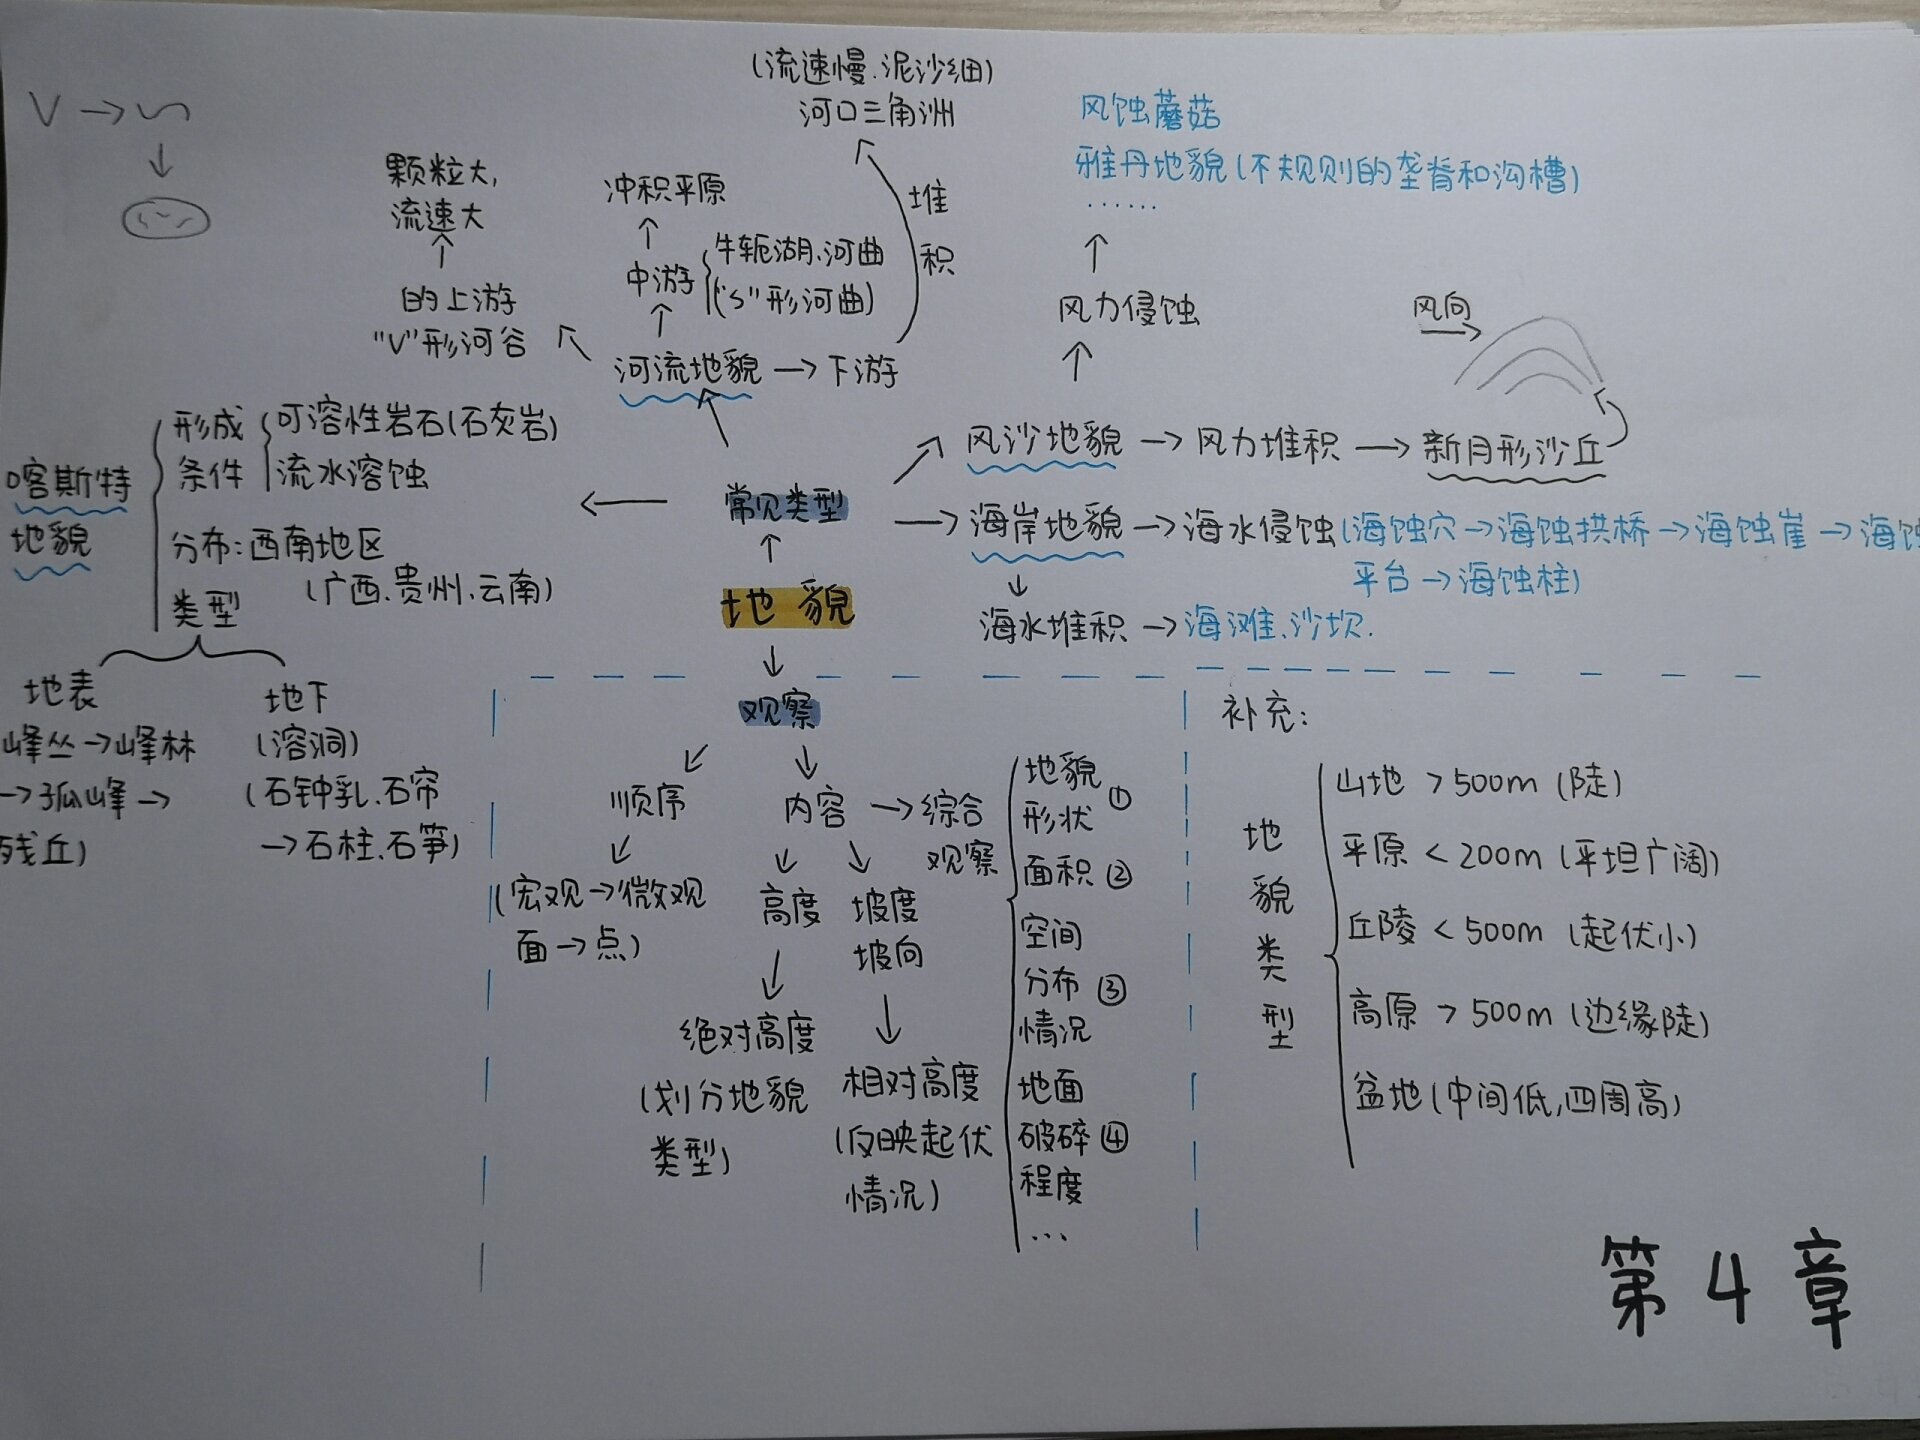 (流速慢.泥沙细)
河口三角洲
堆
积
风蚀蘑菇
雅丹地貌(不规则的垄脊和沟槽)
……
风力侵蚀
V→
颗粒大,
流速大
的上游
"V"形河谷
冲积平原
中游
牛轭湖、河曲
("S"形河曲)
河流地貌→下游
风向
风沙地貌→风力堆积→新月形沙丘
常见类型
海岸地貌→海水侵蚀(海蚀穴→海蚀拱桥→海蚀崖→海蚀
平台→海蚀柱)
海水堆积→海滩、沙坎.
喀斯特
地貌
形成
条件
可溶性岩石(石灰岩)
流水溶蚀
分布:西南地区
(广西、贵州、云南)
类型
地表
峰丛→峰林
→孤峰→
残丘)
地下
(溶洞)
(石钟乳.石帘
→石柱.石笋)
地貌
观察
顺序
(宏观→微观
面→点)
内容→综合
观察
高度
坡度
坡向
绝对高度
(划分地貌
类型)
相对高度
(反映起伏
情况)
地貌
形状①
面积②
空间
分布③
情况
地面
破碎④
程度
…
补充:
地
貌
类
型
山地 >500m (陡)
平原 <200m (平坦广阔)
丘陵 <500m (起伏小)
高原 >500m (边缘陡)
盆地(中间低,四周高)
第4章